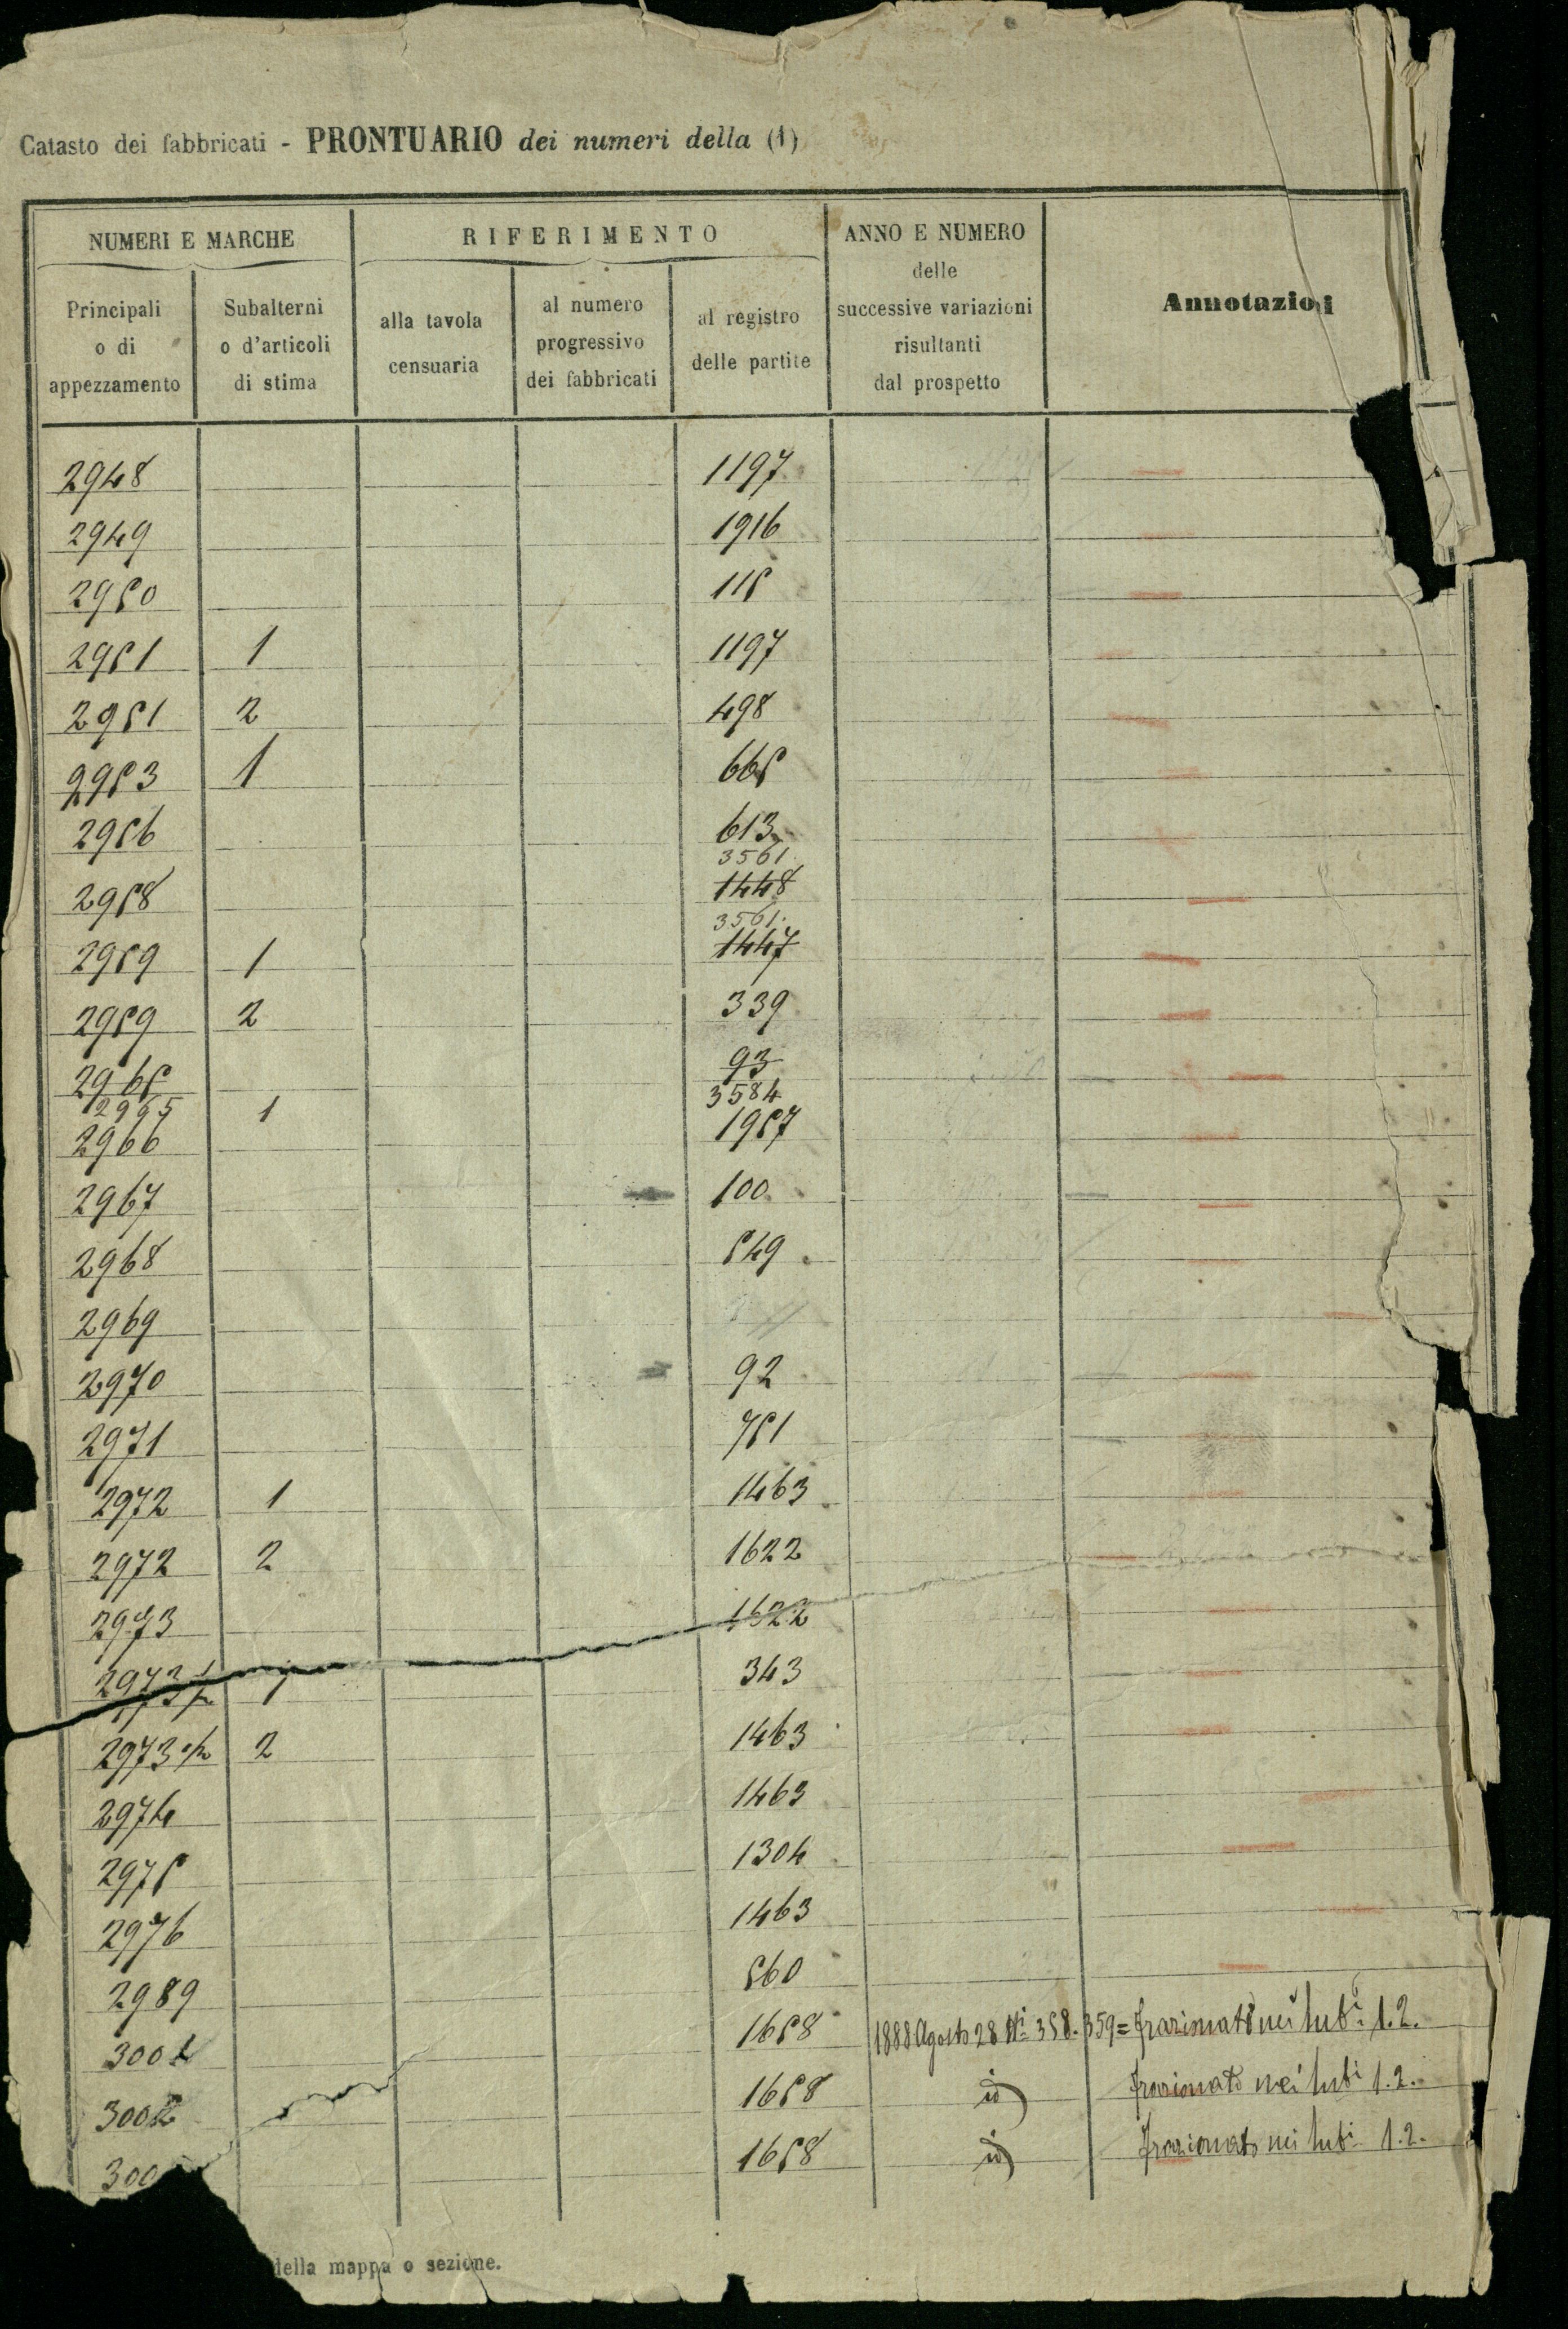 Catasto dei fabbricati - PRONTUARIO dei numeri della (1)
NUMERI E MARCHE
RIFERIMENTO
ANNO E NUMERO
delle
successive variazioni
risultanti
dal prospetto
Annotazioni
Principali
o di
appezzamento
Subalterni
o d'articoli
di stima
alla tavola
censuaria
al numero
progressivo
dei fabbricati
al registro
delle partite
2948 1197
2949 1916
2950 115
2951 1 1197
2951 2 498
2953 1 665
2956 613
3561
2958 1448
3561
2959 1 1447
2959 2 339
2965 93
2965 1 3584
2966 1957
2967 100
2968 549
2969
2970 92
2971 751
2972 1 1463
2972 2 1622
2973 1622
2973 1 343
2973 2 1463
2974 1463
2975 1304
2976 1463
2989 560
3001 1658 1888 Agosto 28 Ni 358. 359 = frazionato nei subi 1.2.
3002 1658 id) frazionato nei subi 1.2.
300 1658 id) frazionato nei subi 1.2.
della mappa o sezione.